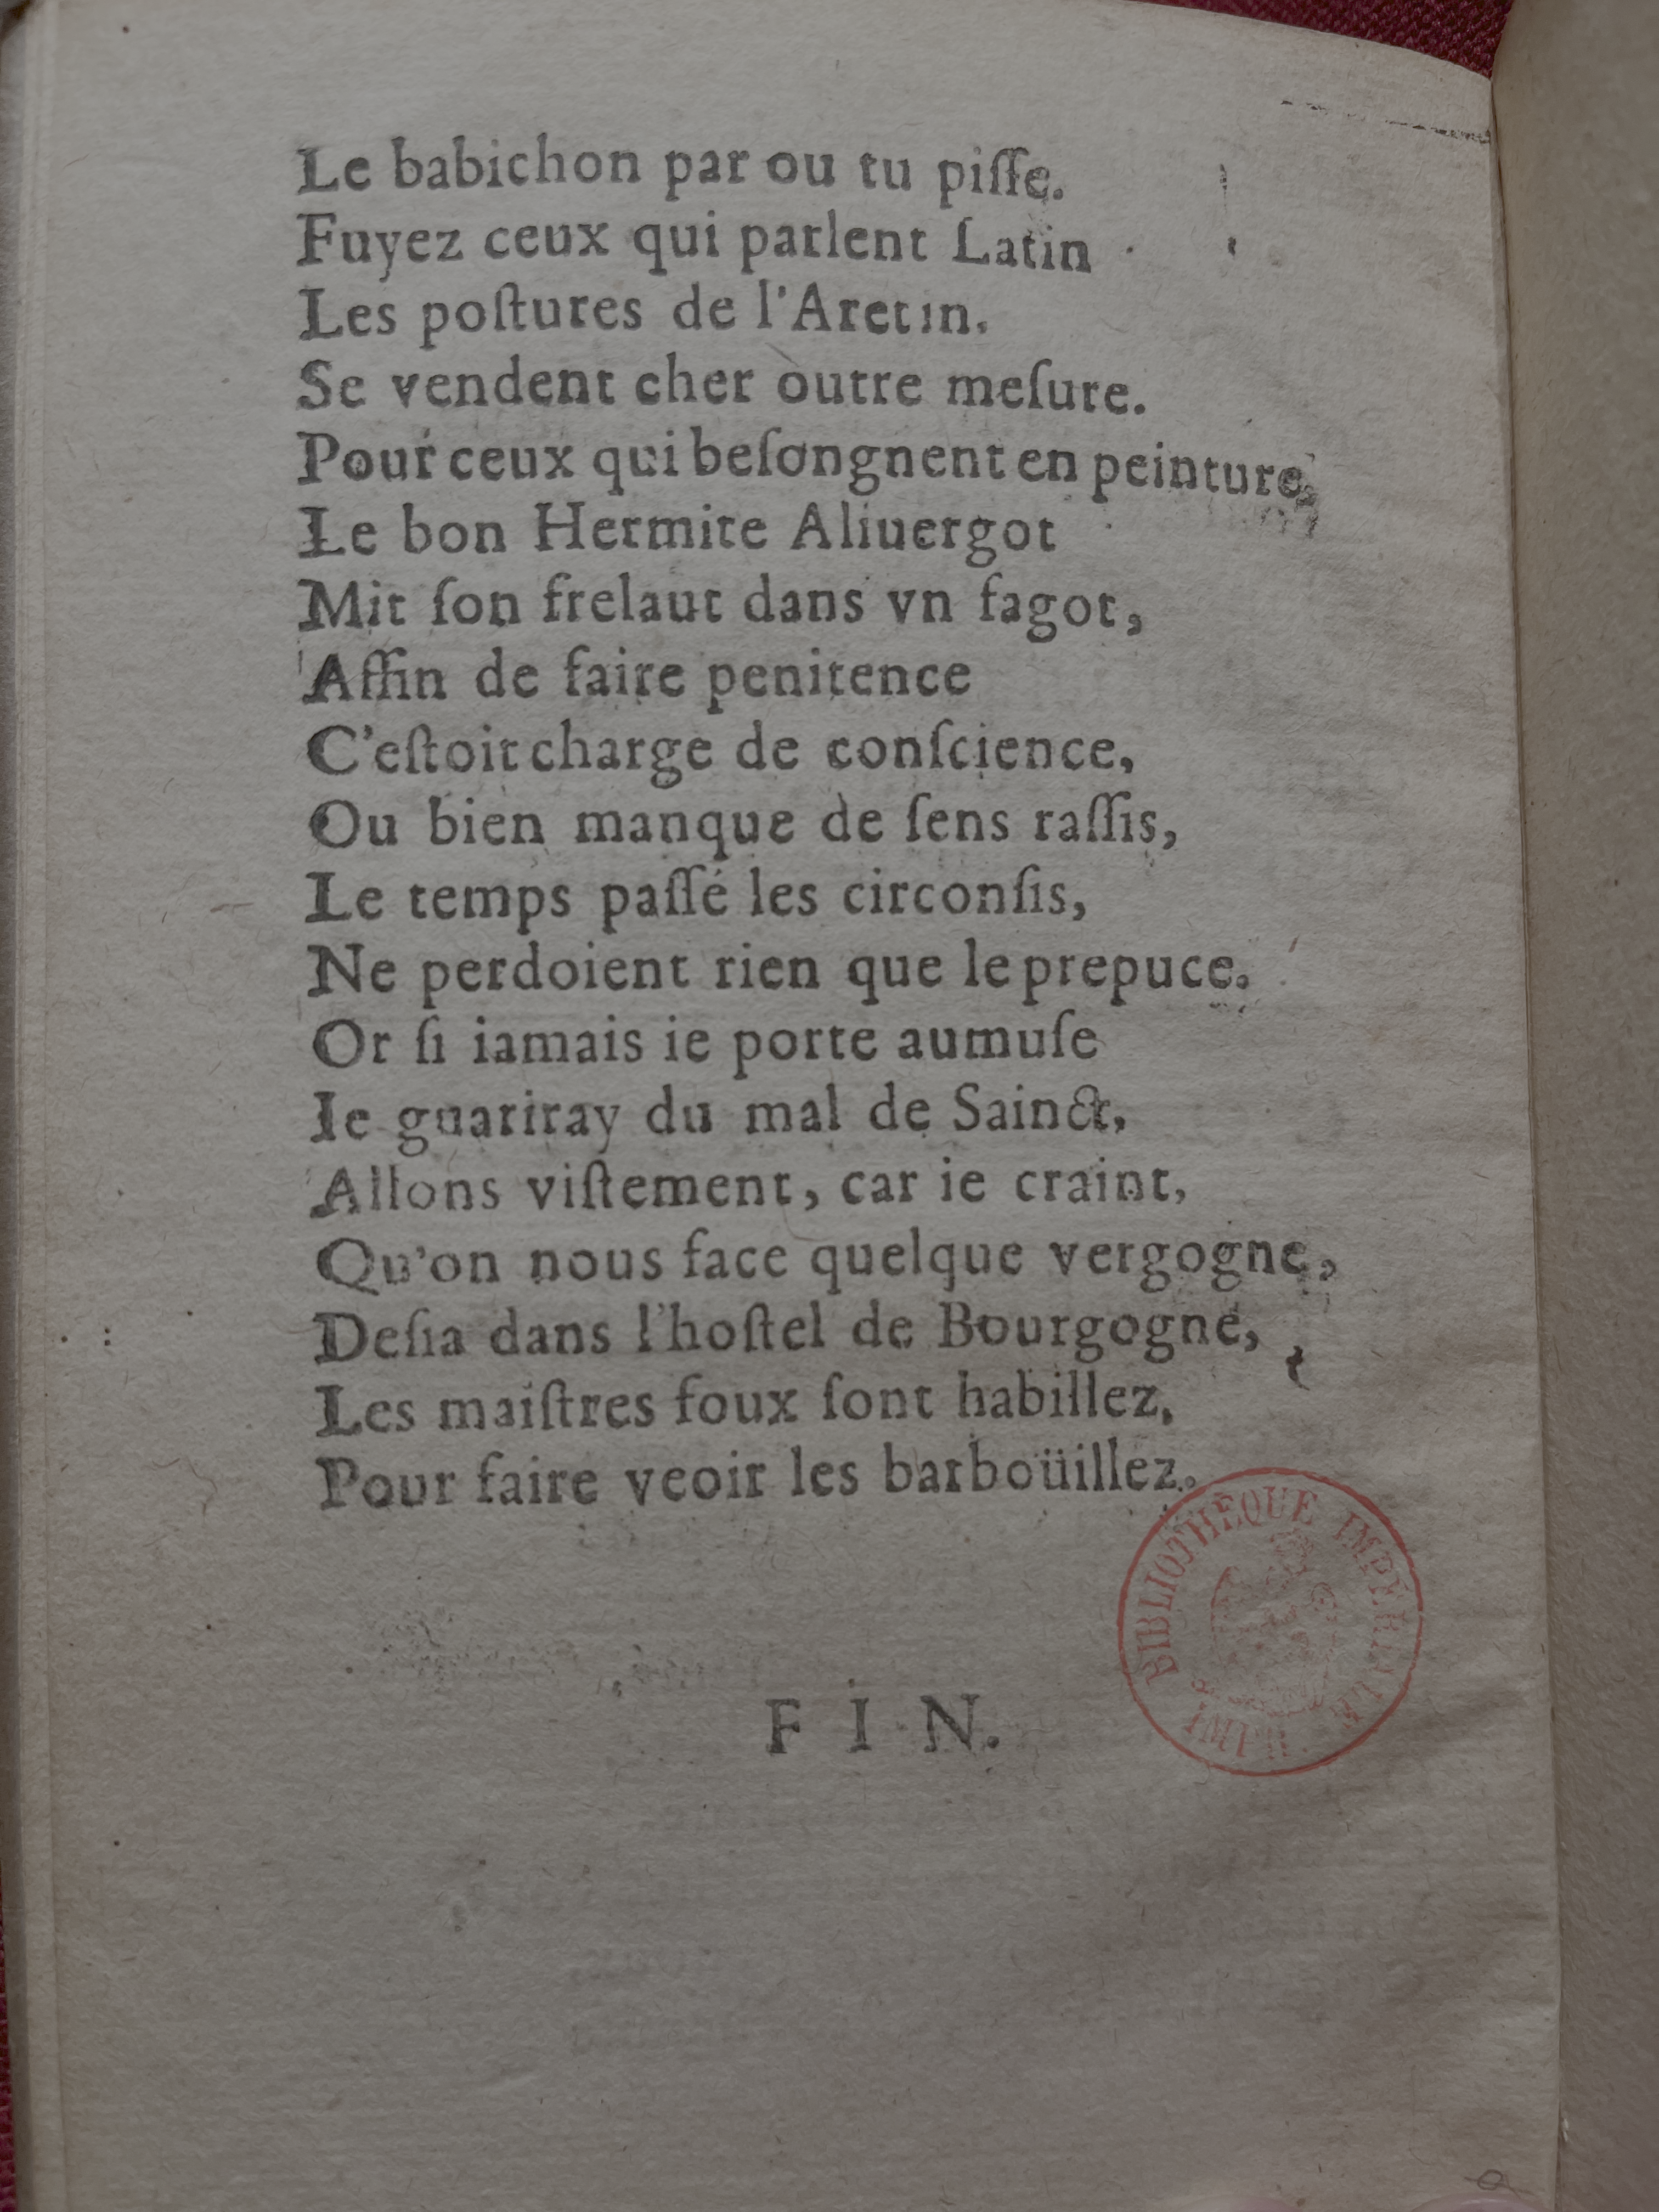 Le babichon par ou tu piſſe.
Fuyez ceux qui parlent Latin
Les poſtures de l'Aretin.
Se vendent cher outre meſure.
Pour ceux qui beſongnent en peinture,
Le bon Hermite Aliuergot
Mit ſon frelaut dans vn fagot,
Affin de faire penitence
C'eſtoit charge de conſcience,
Ou bien manque de ſens raſſis,
Le temps paſſé les circonſis,
Ne perdoient rien que le prepuce.
Or ſi iamais ie porte aumuſe
Ie guariray du mal de Sainct,
Allons viſtement, car ie craint,
Qu'on nous face quelque vergogne,
Deſia dans l'hoſtel de Bourgogne,
Les maiſtres foux ſont habillez,
Pour faire veoir les barboüillez.
BIBLIOTHÈQUE IMPÉRIALE
FIN.